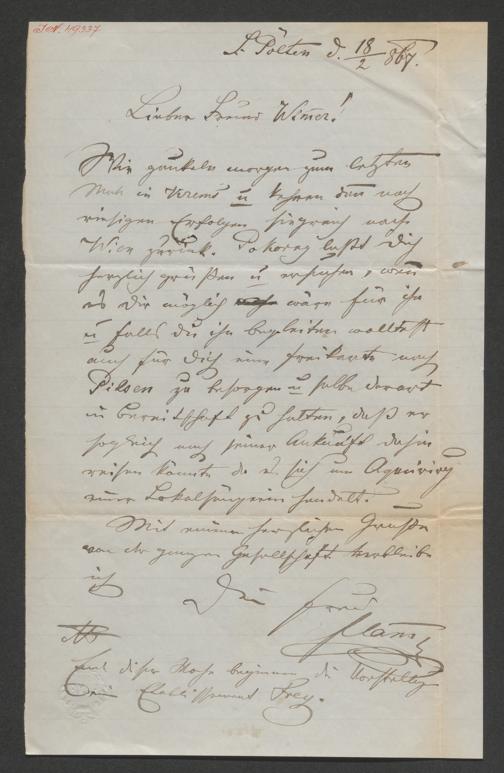 I.N. 49.337
St. Pölten d. 18/2 867.
Lieber Freund Wimer!
Wir gaukeln morgen zum letzten
Male in Krems u kehren dann nach
riesigen Erfolgen siegreich nach
Wien zurück. Pokorny läßt Dich
herzlich grüßen u ersuchen, wenn
es Dir möglich wäre für ihn
u falls du ihn begleiten wolltest
auch für Dich eine Freikarte nach
Pilsen zu besorgen u selbe derart
in Bereitschaft zu halten, daß er
sogleich nach seiner Ankunft dahin
reisen könnte da es sich um Aquirirg
einer Lokalsängerin handelt.
Mit einem herzlichen Gruße
von der ganzen Gesellschaft verbleibe
ich
Dein Freund
NB
Ende dieser Woche beginnen die Vorstellg
im Etablissement Frey.